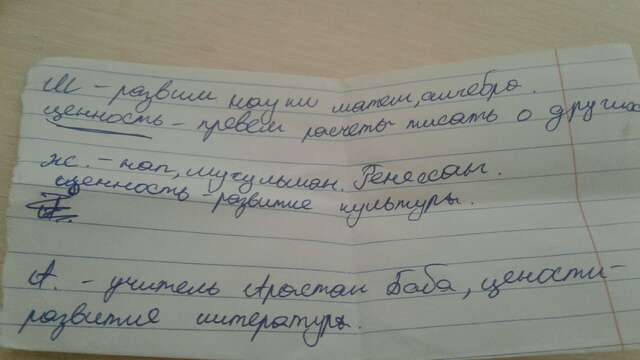 М - развит науки матем, алгебра.
ценность - превем расчеты писать о других
ж. - нап, мусульман. Ренессанс.
ценность - развитие культуры.
А. - учитель Арыстан Баба, цености-
развитие литературы.